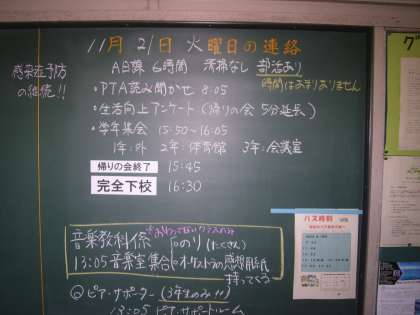 11月21日 火曜日の連絡
A日課 6時間 清掃なし 部活あり
時間はあまりありません
感染症予防
の継続!!
・PTA読み聞かせ 8:05
・生活向上アンケート(帰りの会 5分延長)
・学年集会 15:50~16:05
1年:外 2年:体育館 3年:会議室
帰りの会終了 15:45
完全下校 16:30
音楽教科係
13:05 音楽室集合
・のり(たくさん)
・オーケストラの感想用紙
持ってくる
◎ピア・サポーター(3年生のみ!!)
13:05 ピア・サポートルーム
バス時刻